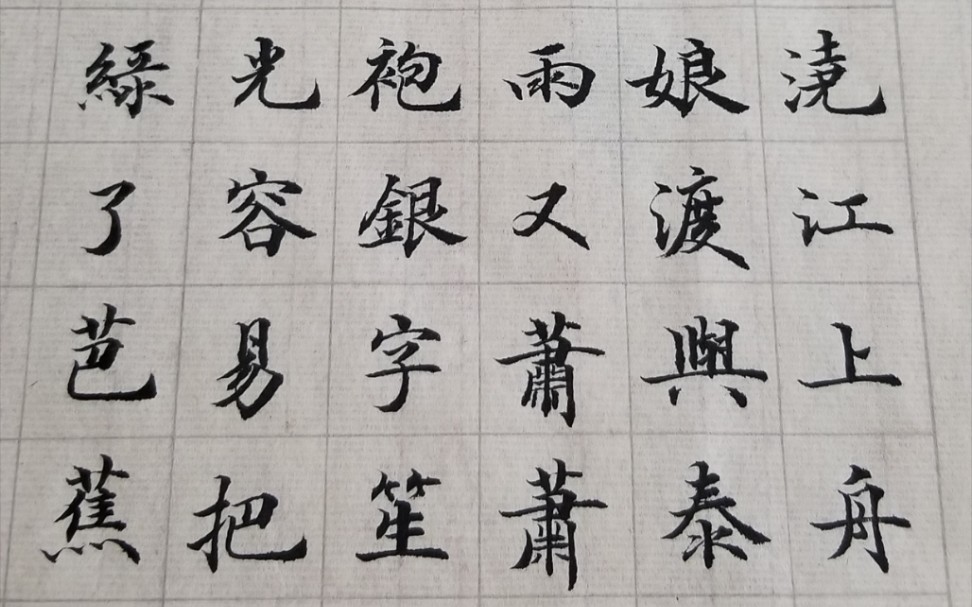 澆江上舟
娘渡與泰
雨又蕭蕭
袍銀字笙
光容易把
綠了芭蕉